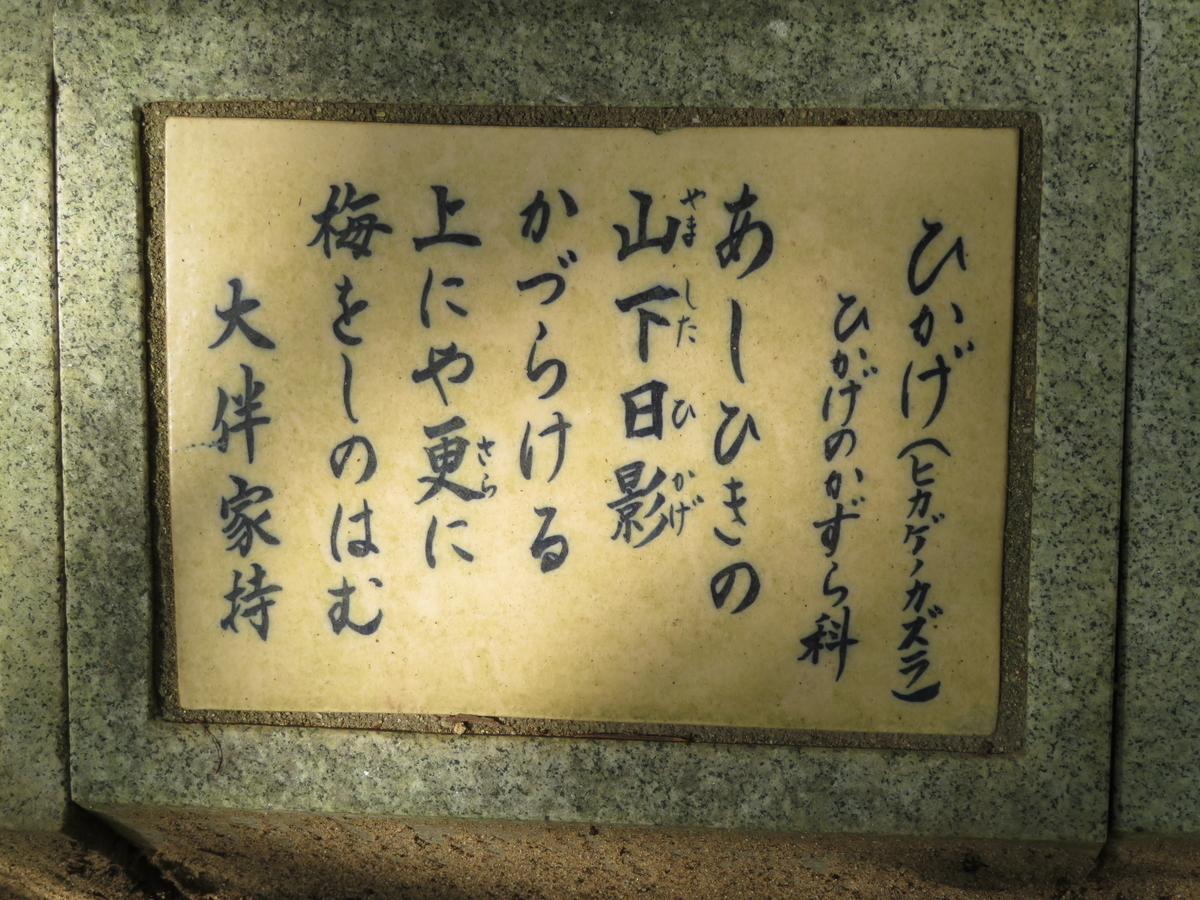 ひかげ(ヒカゲノカズラ)
ひかげのかずら科
あしひきの
山下日影
やましたひかげ
かづらける
上にや更に
さら
梅をしのはむ
大伴家持